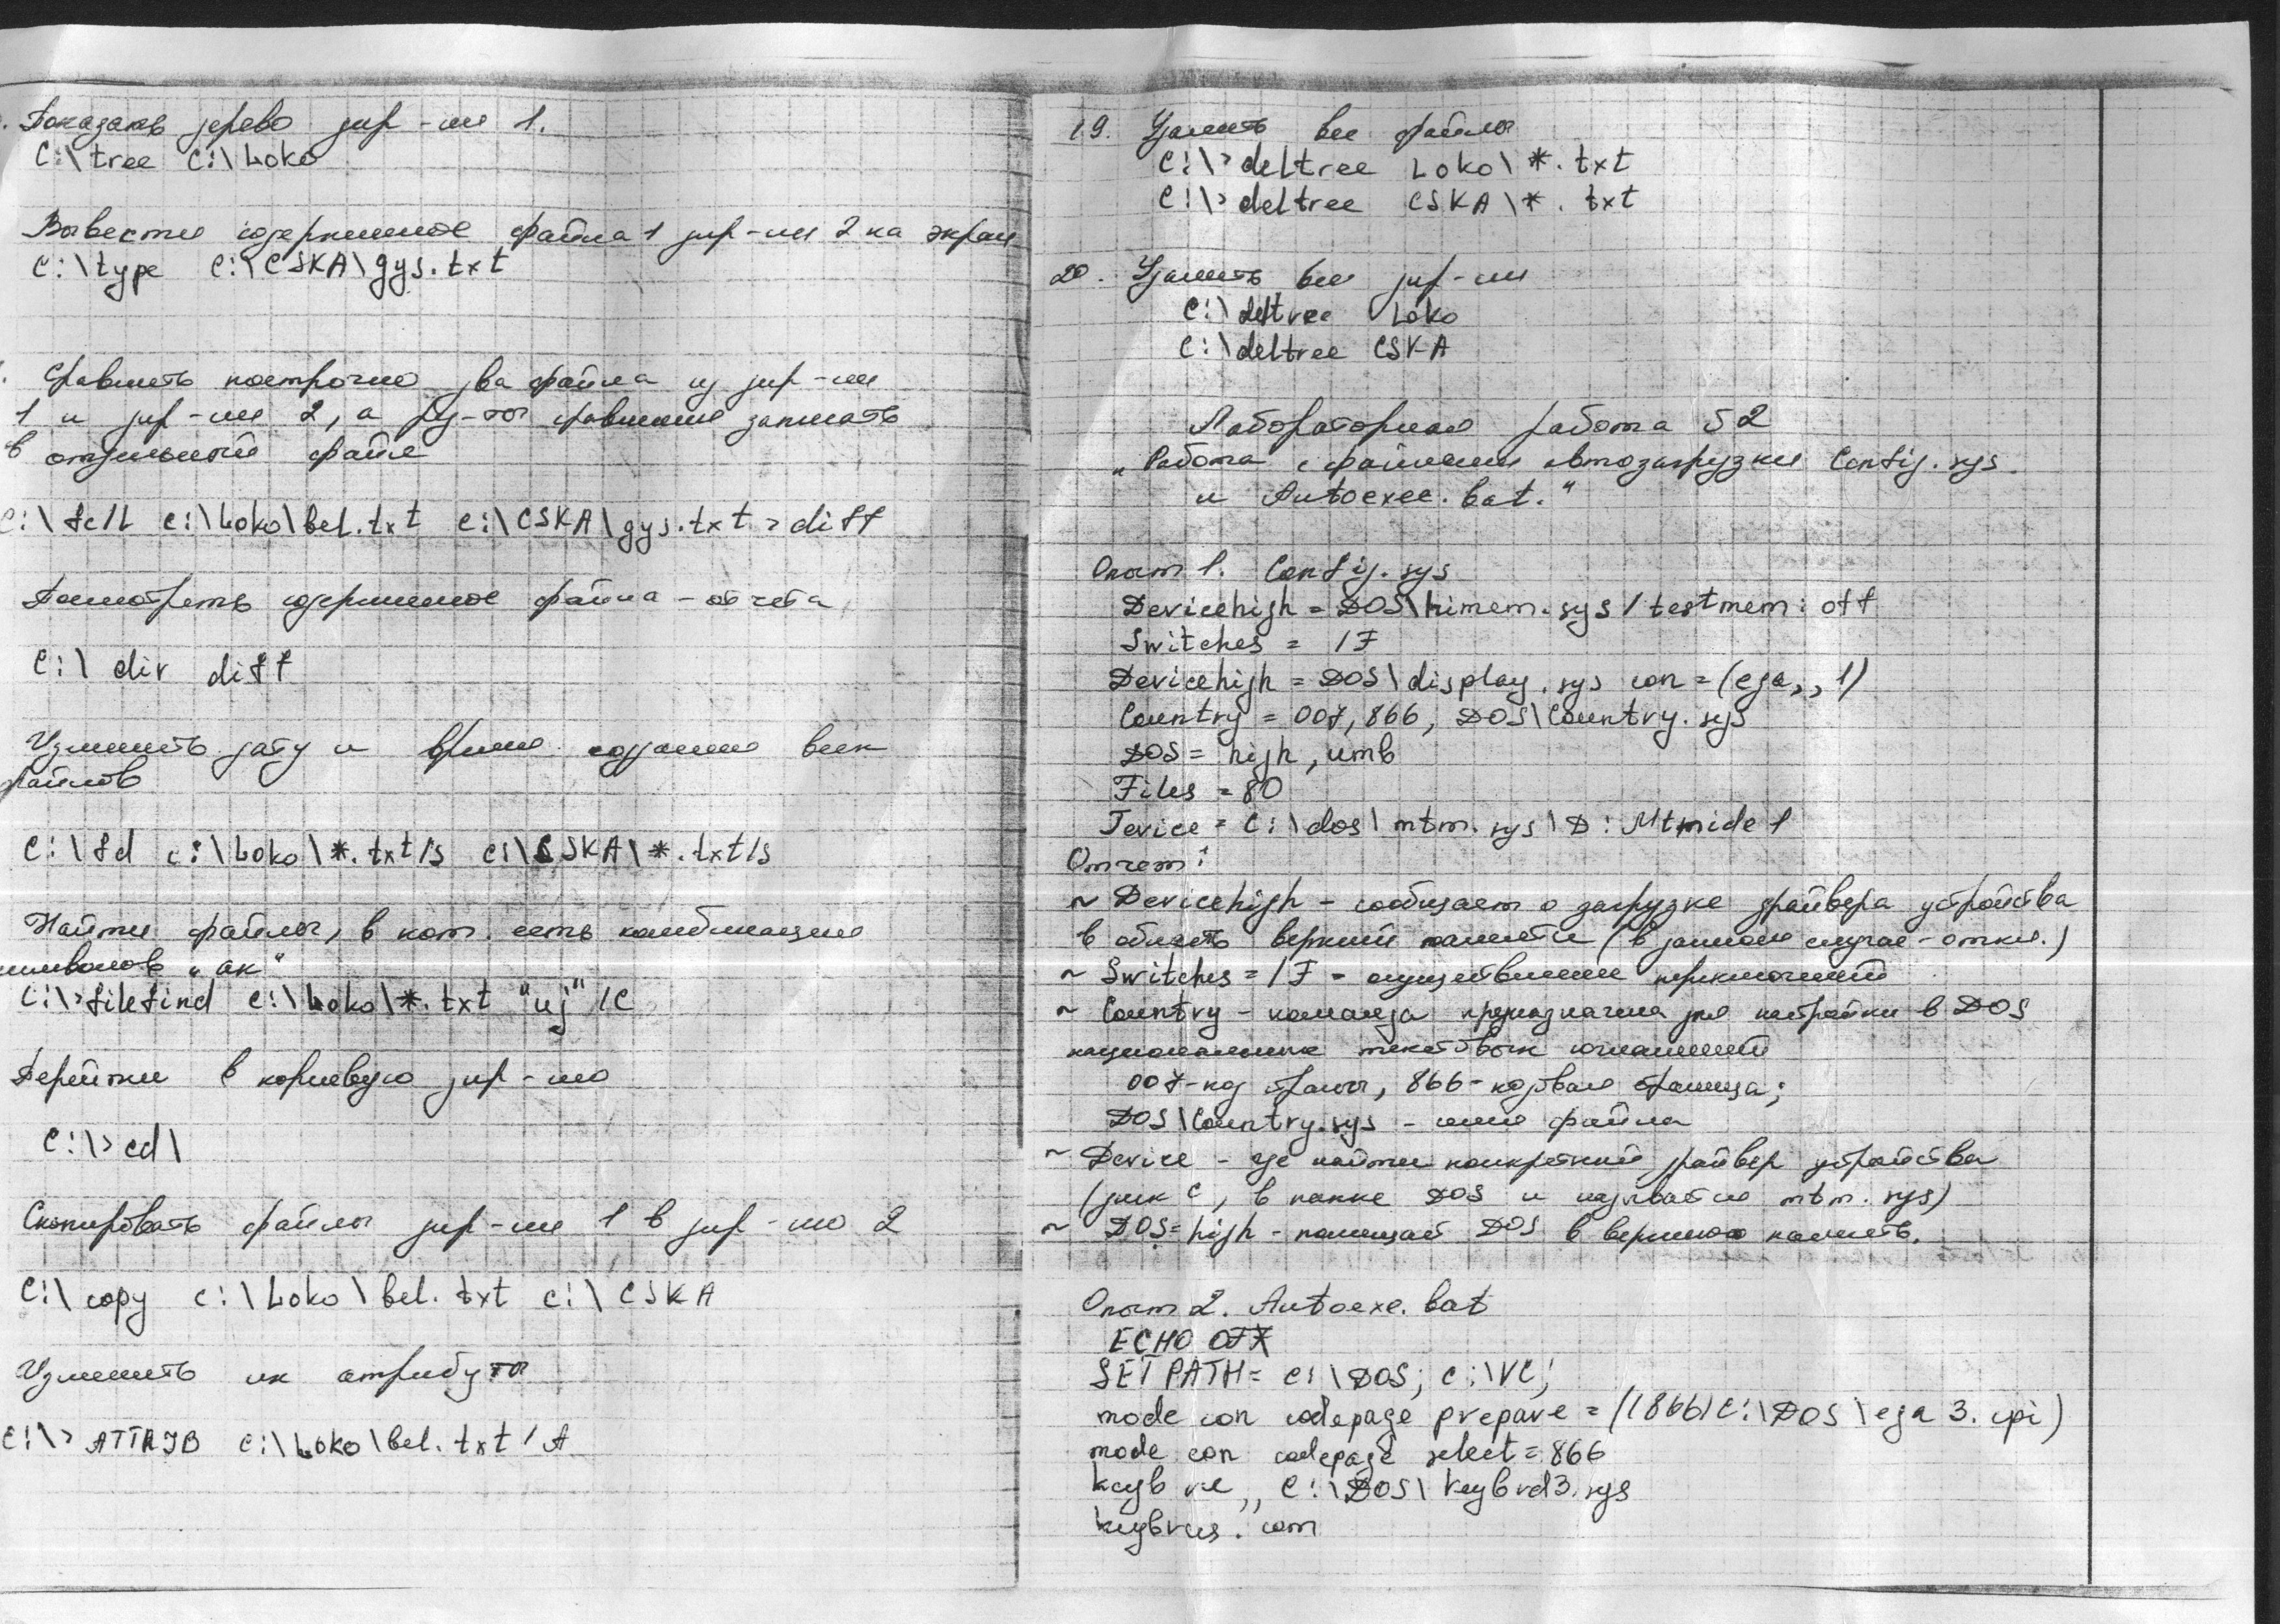 . Показать дерево дир-ии 1.
C:\tree C:\Loko
Вывести содержимое файла 1 дир-ии 2 на экран
C:\type C:\CSKA\gys.txt
. Сравнить построчно два файла из дир-ии
1 и дир-ии 2, а рез-ты сравнения записать
в отдельный файл
C:\fc/L c:\Loko\bel.txt c:\CSKA\gys.txt > diff
Посмотреть содержимое файла - отчета
C:\ dir diff
Изменить дату и время создания всех
файлов
C:\fd c:\Loko\*.txt/s c:\CSKA\*.txt/s
Найти файлы, в кот. есть комбинация
символов "ак"
C:\>filefind c:\Loko\*.txt "uj" /C
Перейти в корневую дир-ию
C:\>cd\
Скопировать файлы дир-ии 1 в дир-ию 2
C:\ copy c:\Loko\bel.txt c:\CSKA
Изменить их атрибуты
C:\> ATTRIB c:\Loko\bel.txt /A
19. Удалить все файлы
C:\>deltree Loko\*.txt
C:\>deltree CSKA\*.txt
20. Удалить все дир-ии
C:\deltree Loko
C:\deltree CSKA
Лабораторная работа 2
„Работа с файлами автозагрузки Config.sys
и Autoexec.bat."
Опыт 1. Config.sys
Devicehigh = DOS\himem.sys /testmem:off
Switches = /F
Devicehigh = DOS\display.sys con=(ega,,1)
Country = 007,866, DOS\Country.sys
DOS = high, umb
Files = 80
Device = C:\dos\mtm.sys\D:Mtmide1
Отчет:
~ Devicehigh - сообщает о загрузке драйвера устройства
в область верхней памяти (в данном случае - откл.)
~ Switches = /F - осуществление переключений
~ Country - команда предназначена для настройки в DOS
национальных текстовых соглашений
007-код страны, 866-кодовая страница;
DOS\Country.sys - имя файла
~ Device - где найти конкретный драйвер устройства
(диск C, в папке DOS и называется mtm.sys)
~ DOS=high - помещает DOS в верхнюю память.
Опыт 2. Autoexe.bat
ECHO OFF
SET PATH= c:\DOS; c:\VC;
mode con codepage prepare = ((866)C:\DOS\ega3.cpi)
mode con codepage select=866
keyb ru,, C:\DOS\keybrd3.sys
keybrus.com